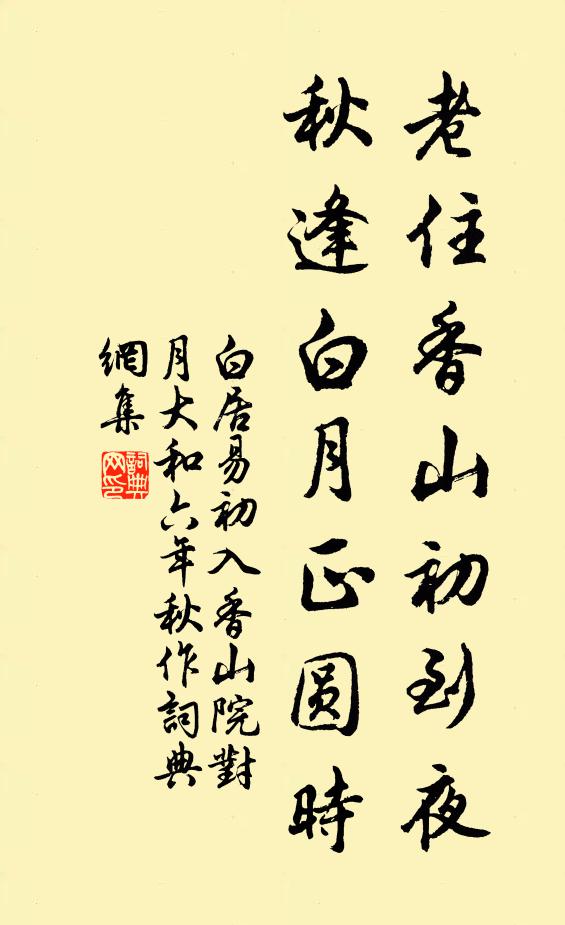 老住香山初到夜
秋逢白月正圆時
白居易初入香山院對
月大和六年秋作詞典
網集
詞典
网印